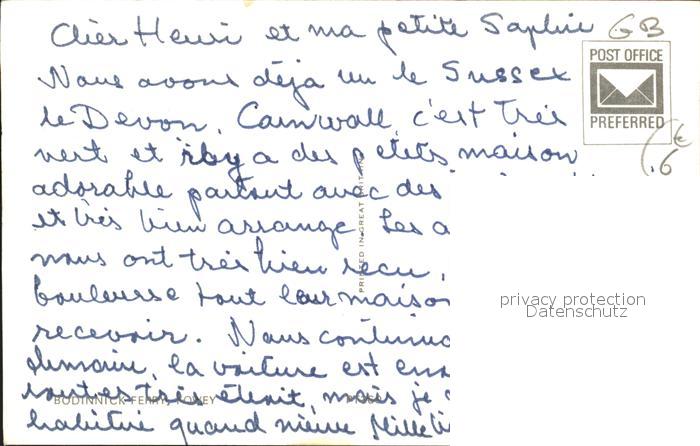 Cher Henri et ma petite Sophie GB
Nous avons déja vu le Sussex
le Devon, Cornwall c'est Très
vert et il y a des petits maison
adorable partout avec des
et très bien arrange. Les a
nous ont très bien recu,
bouleverse tout leur maison
recevoir. Nous continuo
demain, la voiture est
routes très étroit, mais je
habitué quand même Mille
POST OFFICE
PREFERRED
€
1.6
PRINTED IN GREAT BRITAIN
privacy protection
Datenschutz
BODINNICK FERRY, FOWEY